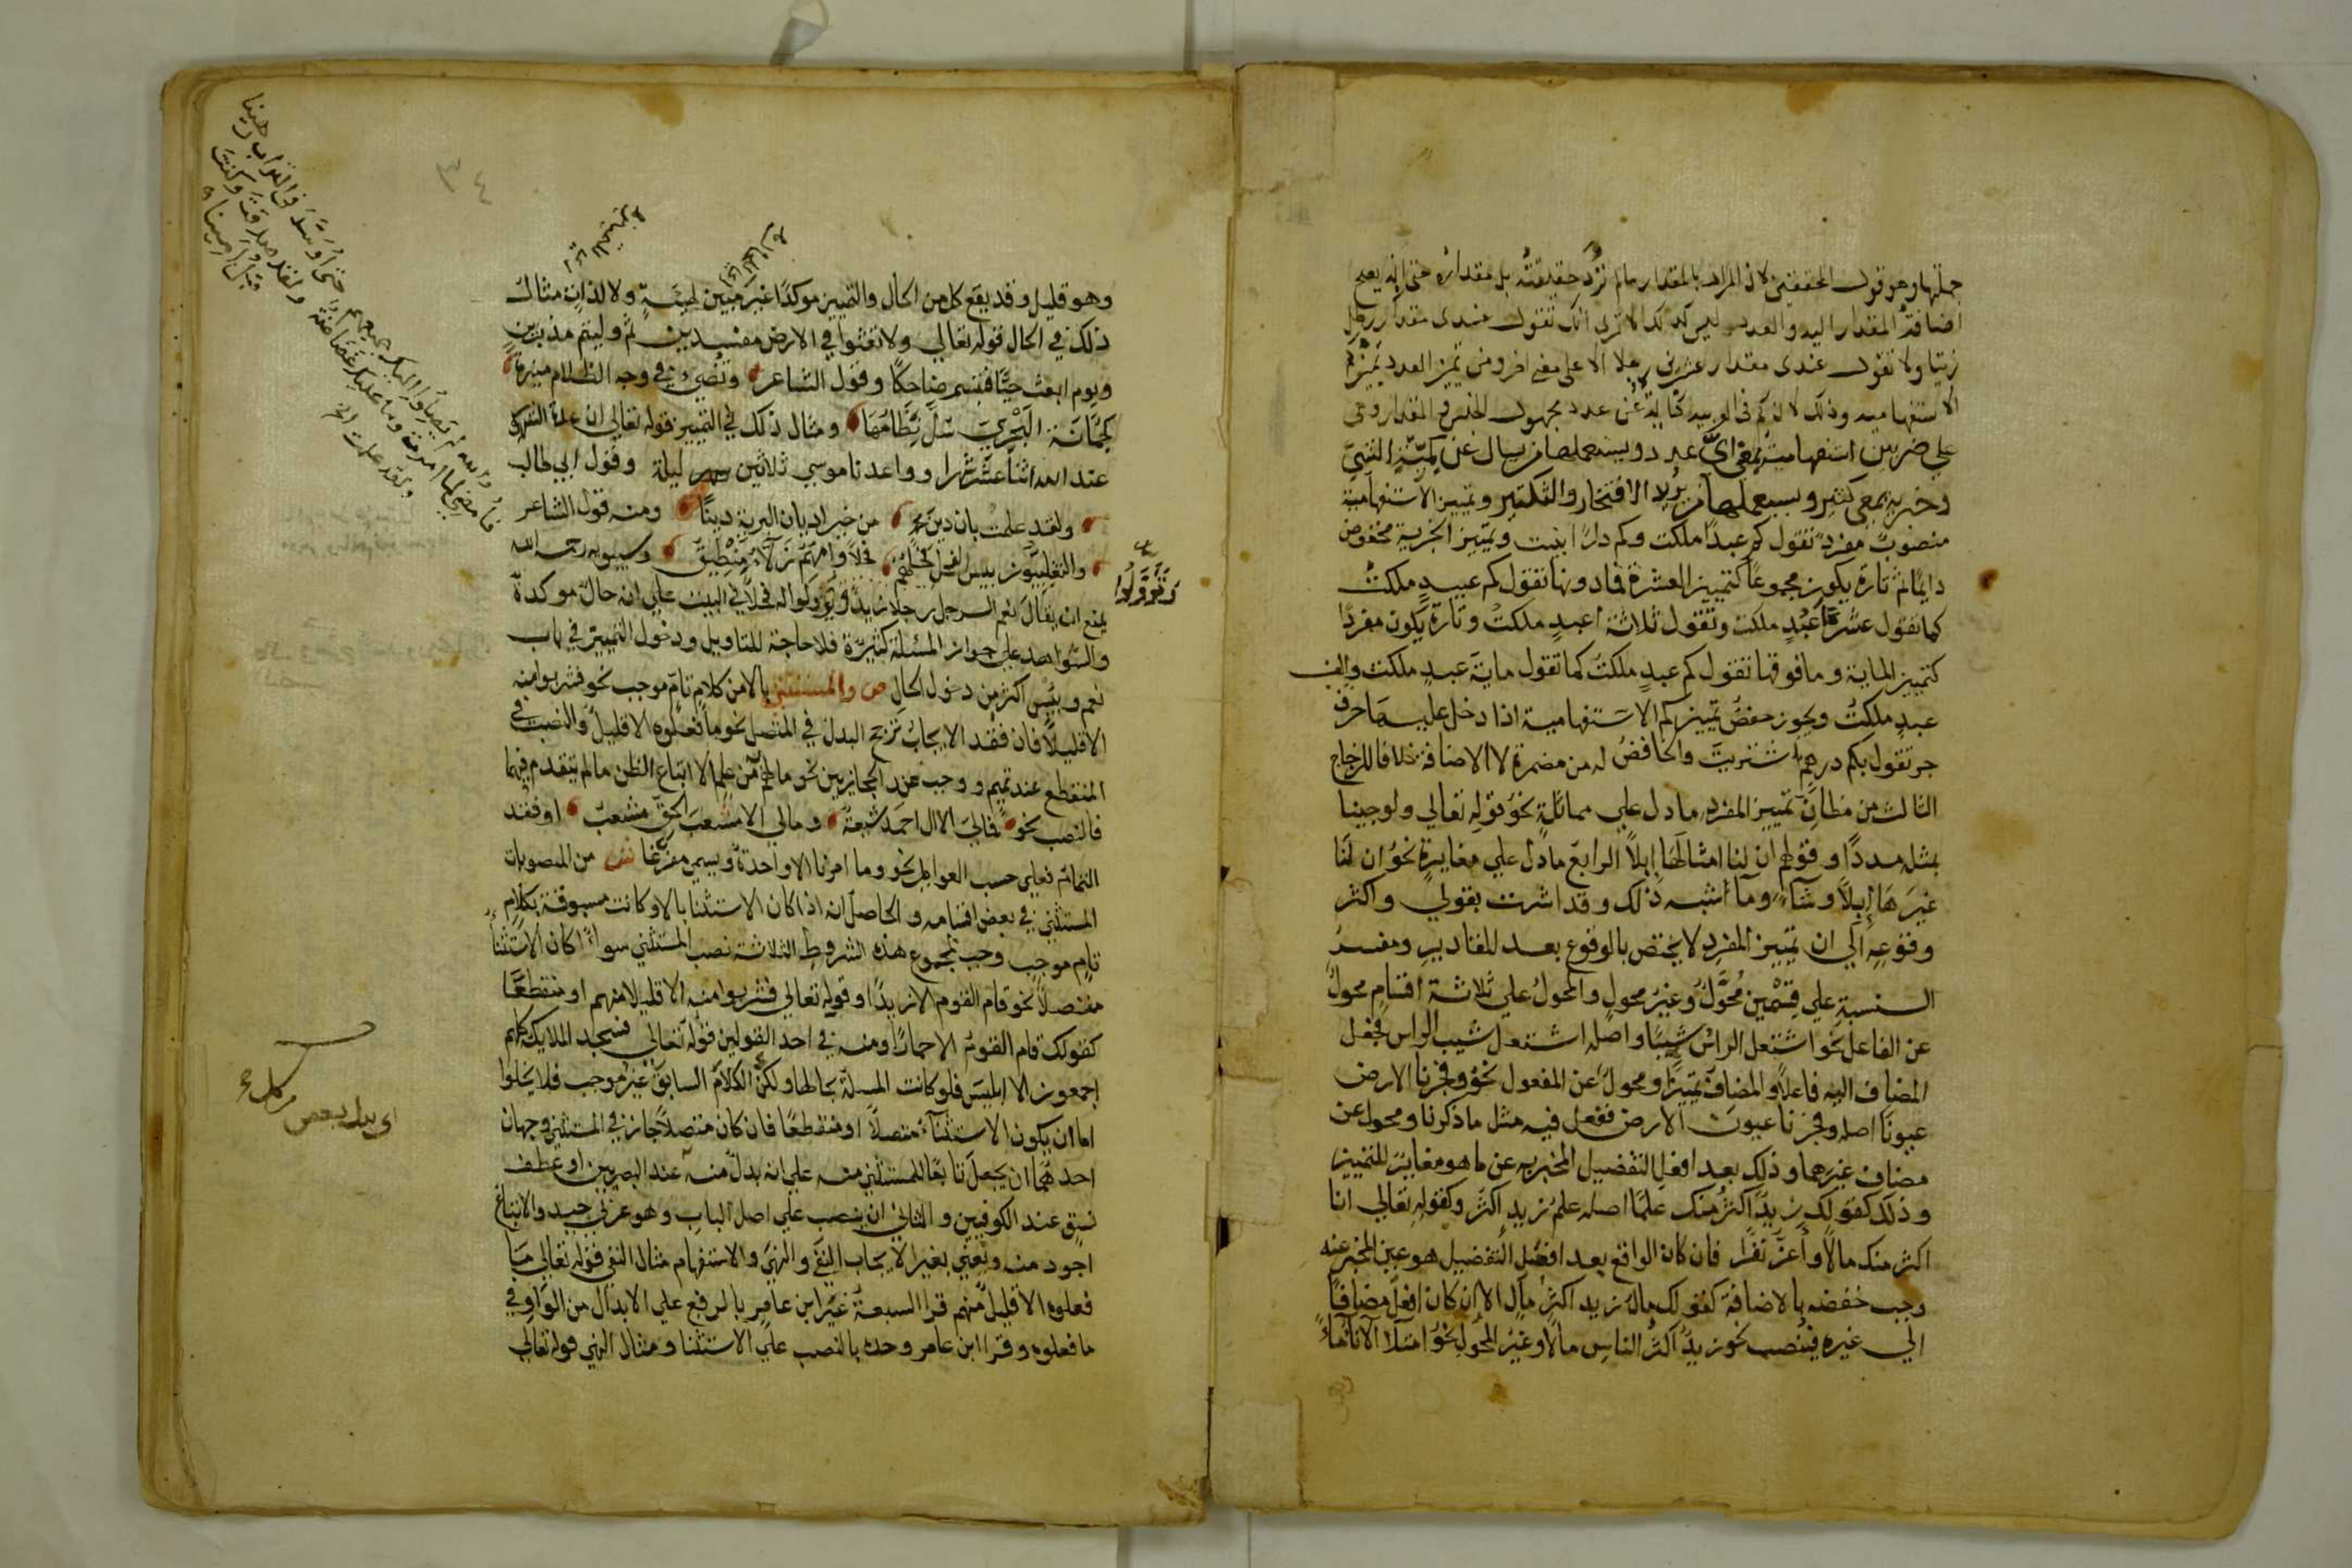 جملتها وهو قول المحققين لان المراد بالمقدار ما لم تُرد حقيقته بل مقداره حتى انه يصح
اضافة المقدار اليه والعدد ليس كذلك الا ترى انك تقول عندى مقدار رطل
زيتا ولا تقول عندى مقدار عشرين رجلا الا على معنى اخر ومن تمييز العدد تمييز كم
الاستفهامية وذلك لان كم فى العربية كناية عن عدد مجهول الجنس والمقدار وهى
على ضربين استفهامية بمعنى اىّ عدد ويستعملها من يسال عن كميّة الشىء
وخبرية بمعنى كثير ويستعملها من يريد الافتخار والتكثير وتمييز الاستفهامية
منصوب مفرد تقول كم عبدًا ملكت وكم دارًا بنيت وتمييز الخبرية مخفوض
دايما ثم تارة يكون مجموعا كتمييز العشرة فما دونها تقول كم عبيدٍ ملكتُ
كما تقول عشرة اعبُدٍ ملكت وتقول ثلاثة اعبدٍ ملكتُ وتارة يكون مفردًا
كتمييز الماية وما فوقها تقول كم عبدٍ ملكتُ كما تقول ماية عبدٍ ملكت والف
عبدٍ ملكتُ ويجوز خفضُ تمييز كم الاستفهامية اذا دخل عليها حرف
جر تقول بكم درهمٍ اشتريت والخافضُ له من مضمرة لا الاضافة خلافا للزجاج
الثالث من مظانّ تمييز المفرد ما دل على مماثلةٍ نحو قوله تعالى ولو جينا
بمثله مددًا وقولهم ان لنا امثالَها ابلاً الرابع ما دل على مغايرةٍ نحو ان لنا
غيرَها إبلاً وشآءً وما أشبه ذلك وقد اشرت بقولي واكثر
وقوعِهِ الى ان تمييز المفردِ لا يختص بالوقوع بعد المقاديرِ ومفسرُ
النسبةِ على قِسْمين مُحَوَّلٌ وغيرُ محولٍ والمحولُ على ثلاثة اقسامٍ محولٌ
عن الفاعل نحو اشتعل الراسُ شيبًا واصله اشتعل شيب الراس فجعل
المضاف اليه فاعلاً والمضاف تمييزًا ومحولٌ عن المفعول نحو وفجرنا الارض
عيونًا اصله وفجرنا عيونَ الارض ففعل فيه مثل ما ذكرنا ومحول عن
مضاف غيرهما وذلك بعد افعل التفضيل المخبر به عن ما هو مغايرٌ للتمييز
وذلك كقولك زيدٌ اكثرُ منك علمًا اصله علمُ زيدٍ اكثرُ وكقوله تعالى انا
اكثر منك مالاً وأعزُّ نفرًا فان كان الواقع بعد افعل التفضيل هو عين المخبر عنه
وجب خفضه بالاضافة كقولك مالُ زيد اكثرُ مالٍ الا ان كان افعلُ مضافًا
الى غيره فينصب نحو زيدٌ اكثرُ الناسِ مالاً وغيرُ المحولِ نحو امتلأ الاناءُ ماءً
٣٤
وهو قليل وقد يقع كل من الحال والتمييز موكدًا غيرَ مبين لهيئةٍ ولا لذاتٍ مثالُ
ذلك في الحال قوله تعالى ولا تعثوا في الارض مفسدين ثم وليتم مدبرين
ويوم ابعث حيًّا فتبسم ضاحكًا وقول الشاعر وتُضيءُ في وجه الظلام منيرةً
كجُمَانَةِ البَحْرِيِّ سُلَّ نِظَامُهَا ومثال ذلك في التمييز قوله تعالى ان عدة الشهور
عند الله اثنا عشر شهرا وواعدنا موسى ثلاثين ليلة وقول ابي طالب
ولقد علمتُ بان دينَ محمدٍ من خير اديان البرية دينًا ومنه قول الشاعر
والتغلبيّون بيس الفحلُ فحلُهُمُ فحلاً وامُّهُمُ زَلّآءُ مِنْطِيقُ وسيبويه رحمه الله
يمنع ان يقال نعم الرجل رجلا زيدٌ وتوَوَّلُوا فحلاً في البيت على انه حالٌ موكدةٌ
والشواهد على جواز المسئلة كثيرة فلا حاجة للتاويل ودخول التمييز في باب
نعم وبيس اكثر من دخول الحال ص والمستثنى بالا من كلامٍ تامٍّ موجب نحو فشربوا منه
الا قليلاً فان فقد الايجابُ ترجح البدل في المتصل نحو ما فعلوه الا قليلٌ والنصب في
المنقطع عند تميم ووجب عند الحجازيين نحو ما لهم به من علمٍ الا اتباع الظن ما لم يتقدم فيهما
فالنصب نحو فمالي الا ال احمد شيعةٌ ومالي الا مشعبَ الحقِ مشعبُ او فقد
التمامُ فعلى حسب العوامل نحو وما امرنا الا واحدةٌ ويسمى مفرّغا ش من المنصوبات
المستثنى في بعض اقسامه والحاصل انه اذا كان الاستثنا بالا وكانت مسبوقة بكلامٍ
تامٍ موجبٍ وجب بمجموع هذه الشروط الثلاثة نصب المستثنى سواءٌ اكان الاستثناءُ
متصلاً نحو قام القوم الا زيدًا وقوله تعالى فشربوا منه الا قليلا منهم او منقطعًا
كقولك قام القومُ الا حمارًا ومنه في احد القولين قوله تعالى فسجد الملايكة كلهم
اجمعون الا ابليسَ فلو كانت المسلة بحالها ولكن الكلامُ السابق غيرُ موجب فلا يخلوا
اما ان يكون الاستثنآءُ متصلاً او منقطعًا فان كان متصلاً جاز في المستثنى وجهان
احدهُما ان يجعلَ تابعًا للمستثنى منه على انه بدلٌ منه عند البصريين او عطف
نسقٍ عند الكوفيين والثاني ان ينصب على اصل الباب وهو عربي جيد والاتباع
اجود منه ونعني بغير الايجاب النفي والنهي والاستفهام مثال النفي قوله تعالى ما
فعلوه الا قليلٌ منهم قرا السبعة غيرَ ابن عامرٍ بالرفع على الابدال من الواو في
ما فعلوه وقرا ابن عامر وحده بالنصب على الاستثنا ومثال النهي قوله تعالى
وتَوَوَّلُوا
اى بدل بعض من كل